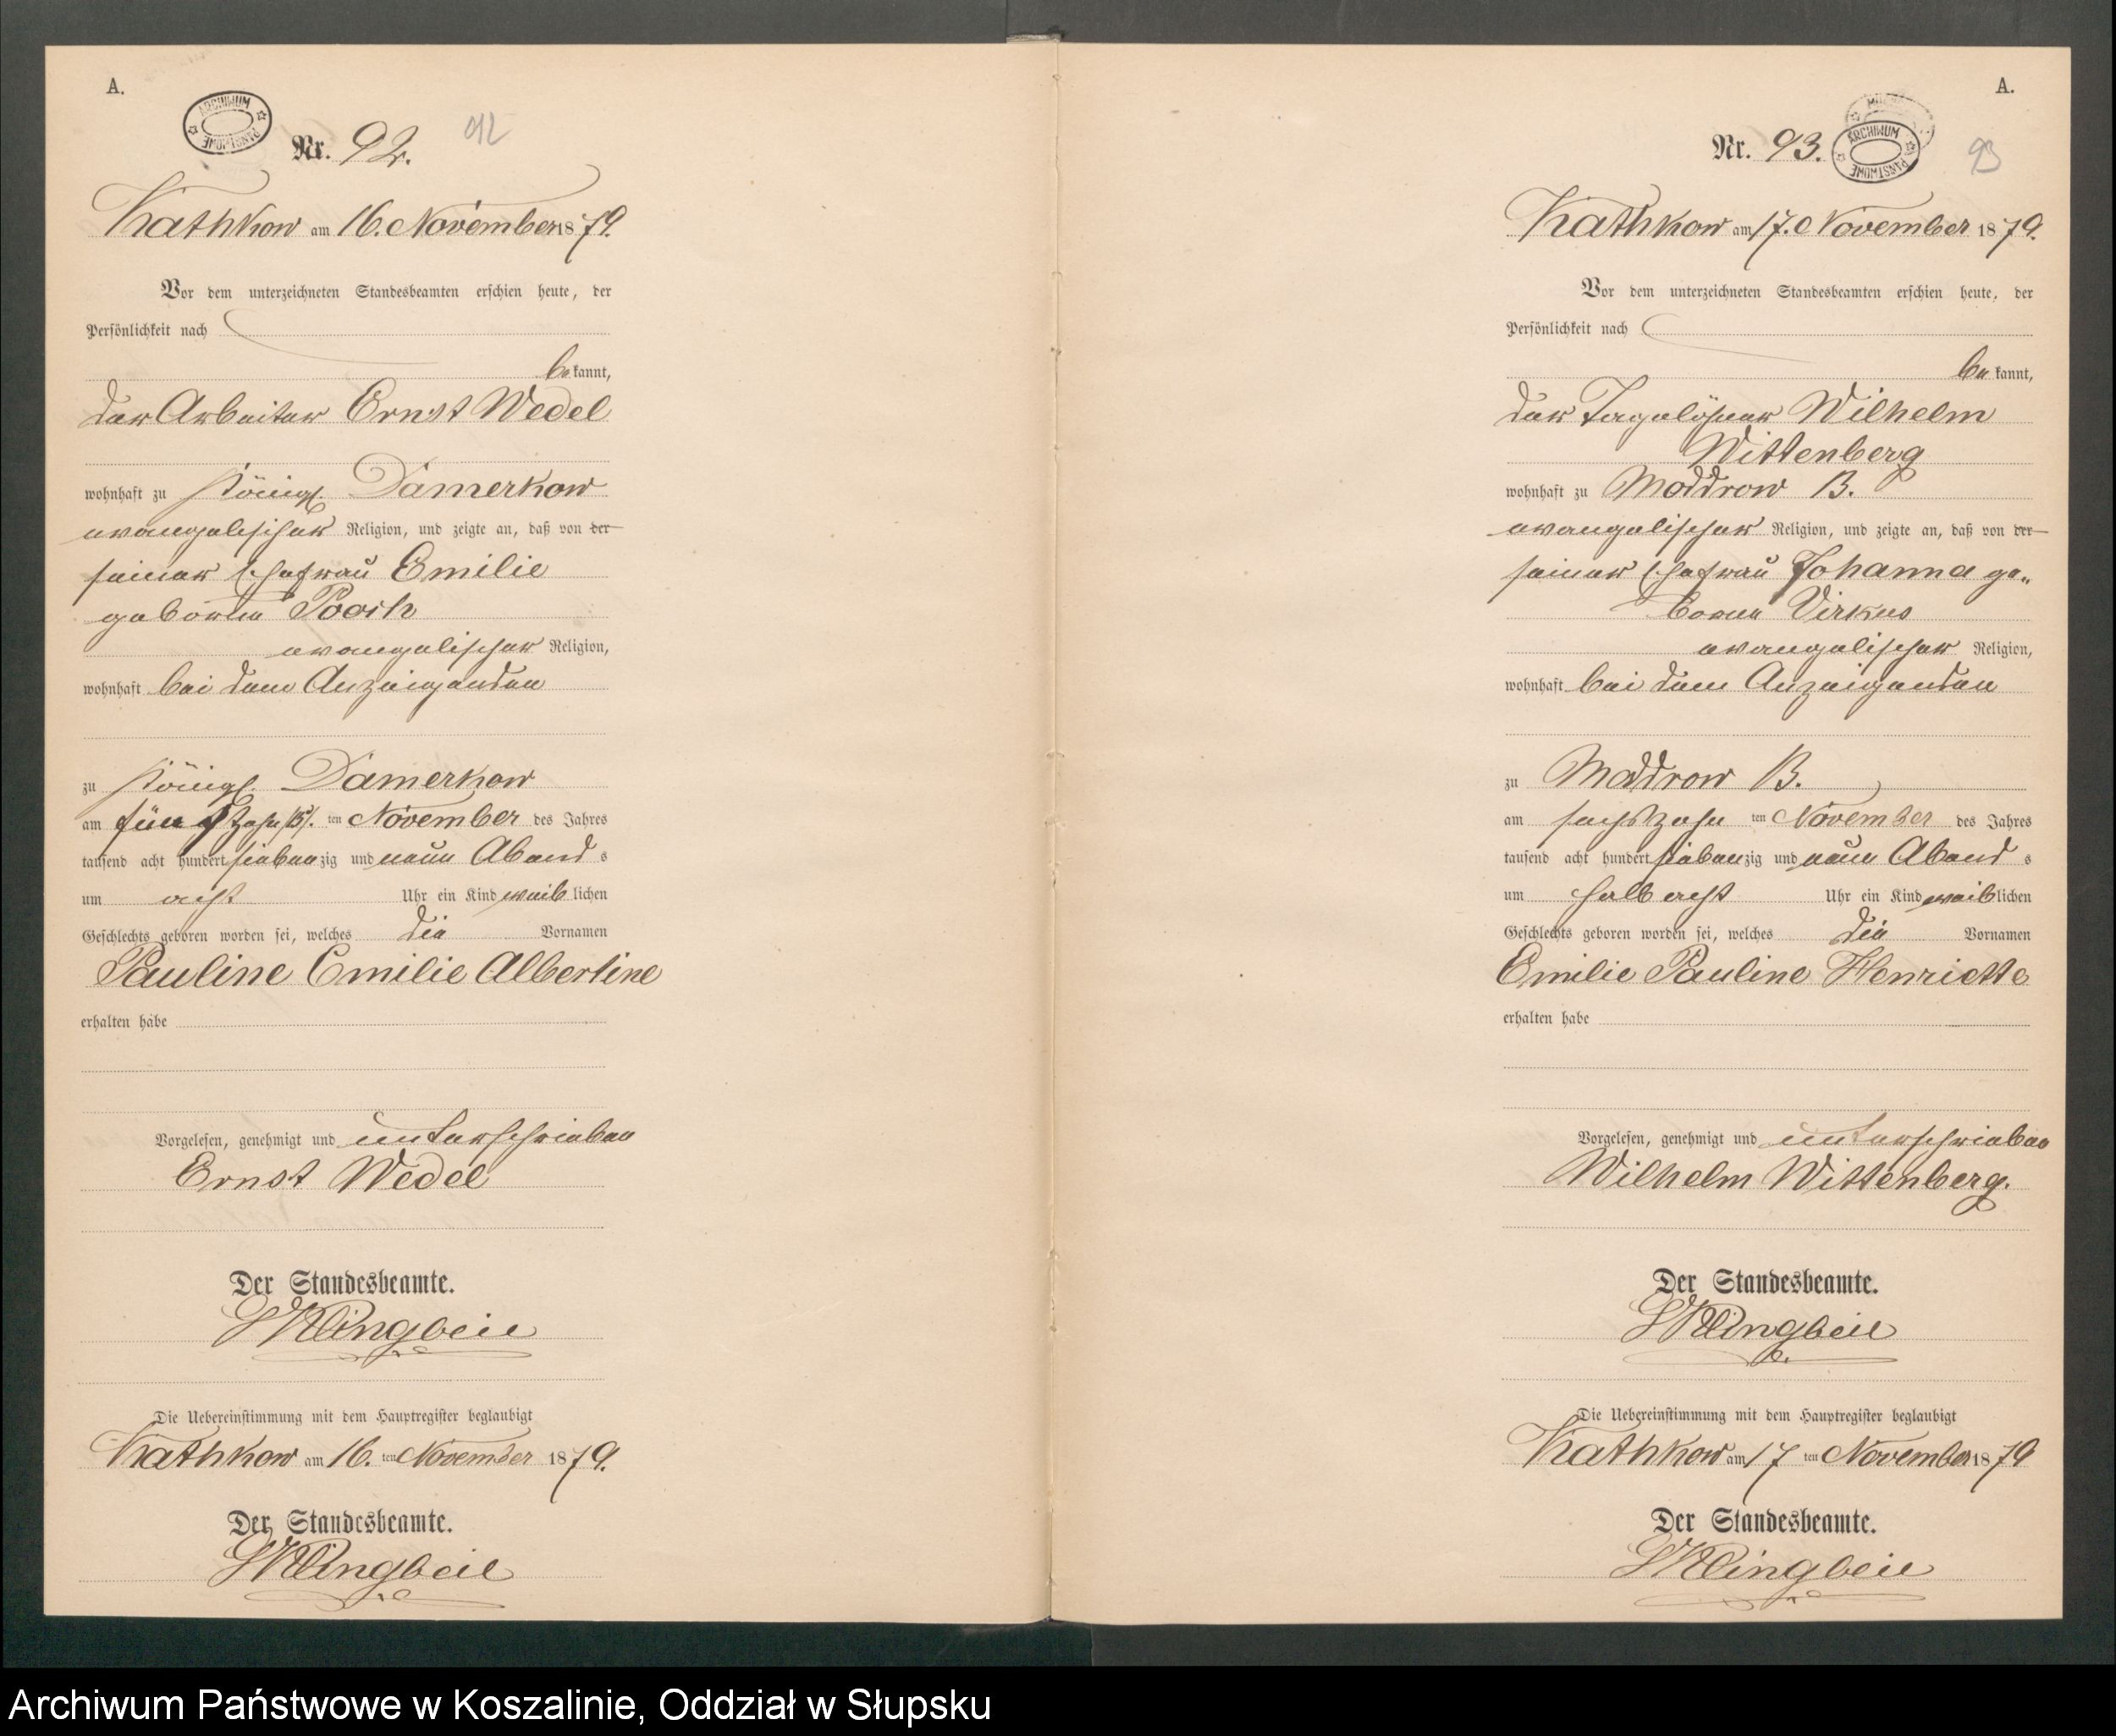 A.
ARCHIWUM PAŃSTWOWE
Nr. 92.
92
Kathkow am 16. November 1879.
Vor dem unterzeichneten Standesbeamten erschien heute, der
Persönlichkeit nach
bekannt,
der Arbeiter Ernst Wedel
wohnhaft zu Königl. Damerkow
evangelischer Religion, und zeigte an, daß von der
seiner Ehefrau Emilie
geborne Poosh
evangelischer Religion,
wohnhaft bei dem Anzeigenden
zu Königl. Damerkow
am fünfzehn /15/. ten November des Jahres
tausend acht hundert siebenzig und neun Abends
um acht Uhr ein Kind weiblichen
Geschlechts geboren worden sei, welches die Vornamen
Pauline Emilie Albertine
erhalten habe
Vorgelesen, genehmigt und unterschrieben
Ernst Wedel
Der Standesbeamte.
Klingbeil
Die Uebereinstimmung mit dem Hauptregister beglaubigt
Kathkow am 16. ten November 1879.
Der Standesbeamte.
Klingbeil
A.
Nr. 93.
ARCHIWUM PAŃSTWOWE
93
Kathkow am 17. November 1879.
Vor dem unterzeichneten Standesbeamten erschien heute, der
Persönlichkeit nach
bekannt,
der Tagelöhner Wilhelm
Wittenberg
wohnhaft zu Moddrow B.
evangelischer Religion, und zeigte an, daß von der
seiner Ehefrau Johanna ge-
borne Virkus
evangelischer Religion,
wohnhaft bei dem Anzeigenden
zu Moddrow B.
am sechszehn ten November des Jahres
tausend acht hundert siebenzig und neun Abends
um halb acht Uhr ein Kind weiblichen
Geschlechts geboren worden sei, welches die Vornamen
Emilie Pauline Henriette
erhalten habe
Vorgelesen, genehmigt und unterschrieben
Wilhelm Wittenberg.
Der Standesbeamte.
Klingbeil
Die Uebereinstimmung mit dem Hauptregister beglaubigt
Kathkow am 17 ten November 1879
Der Standesbeamte.
Klingbeil
Archiwum Państwowe w Koszalinie, Oddział w Słupsku